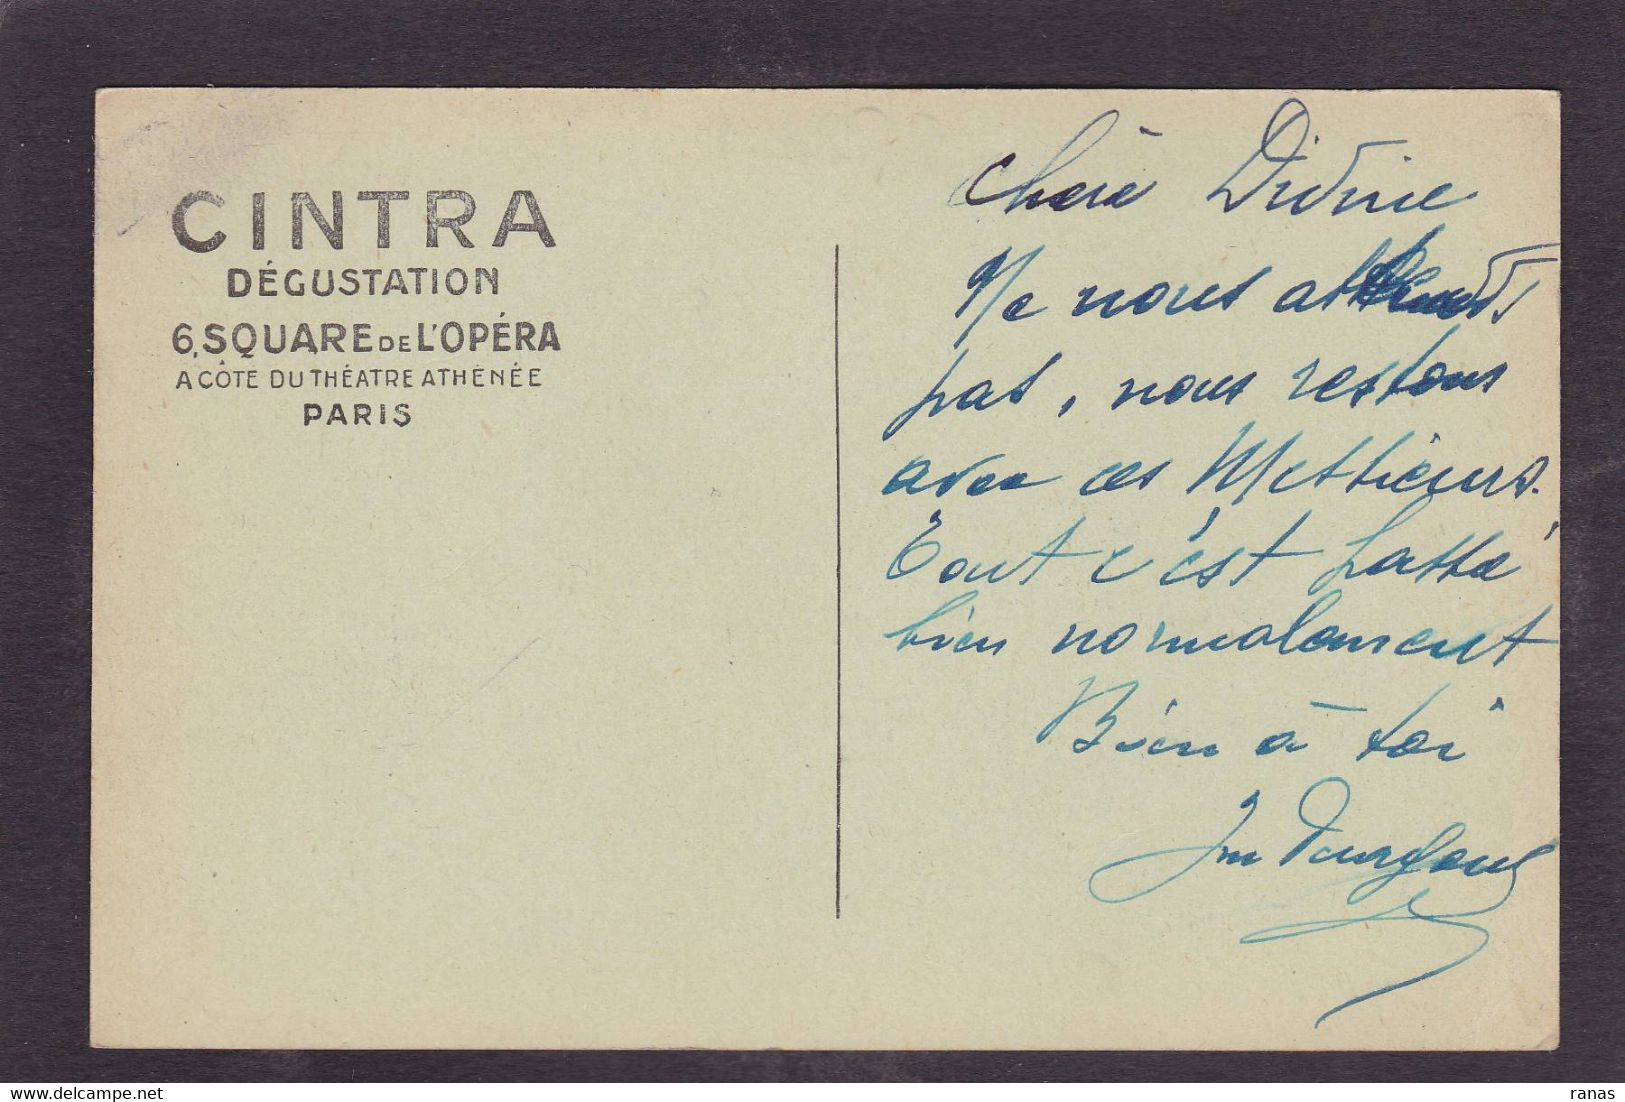 CINTRA
DÉGUSTATION
6, SQUARE DE L'OPÉRA
A CÔTÉ DU THÉATRE ATHÉNÉE
PARIS
Chère Divine
Ne nous attends
pas, nous restons
avec ces Messieurs.
Tout c'est passé
bien normalement
Bien à toi
delcampe.net
ranas